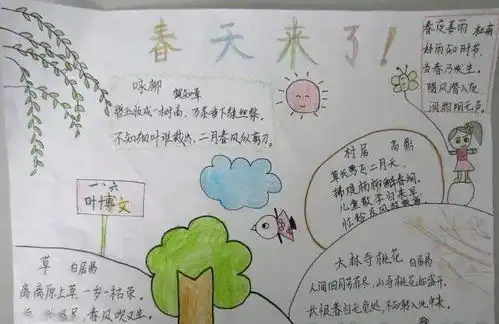 春天来了!
咏柳 贺知章
碧玉妆成一树高,万条垂下绿丝绦。
不知细叶谁裁出,二月春风似剪刀。
春夜喜雨 杜甫
好雨知时节,
当春乃发生。
随风潜入夜,
润物细无声。
村居 高鼎
草长莺飞二月天,
拂堤杨柳醉春烟。
儿童散学归来早,
忙趁东风放纸鸢
一、六
叶博文
草 白居易
离离原上草 一岁一枯荣。
春风吹又生。
大林寺桃花 白居易
人间四月芳菲尽,山寺桃花始盛开。
长恨春归无觅处,不知转入此中来。